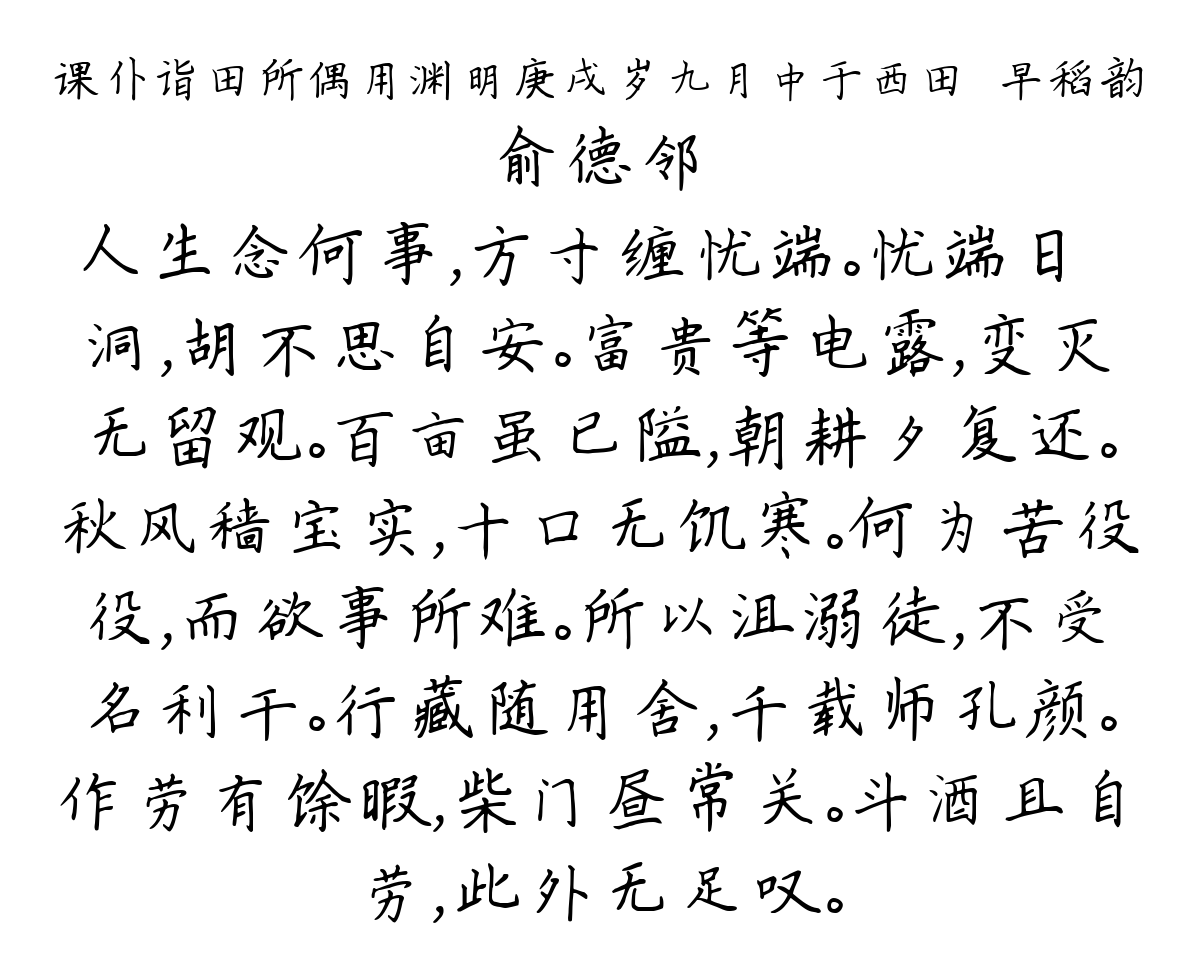 课仆诣田所偶用渊明庚戌岁九月中于西田 早稻韵
俞德邻
人生念何事,方寸缠忧端。忧端日
洞,胡不思自安。富贵等电露,变灭
无留观。百亩虽已隘,朝耕夕复还。
秋风穑宝实,十口无饥寒。何为苦役
役,而欲事所难。所以沮溺徒,不受
名利干。行藏随用舍,千载师孔颜。
作劳有馀暇,柴门昼常关。斗酒且自
劳,此外无足叹。